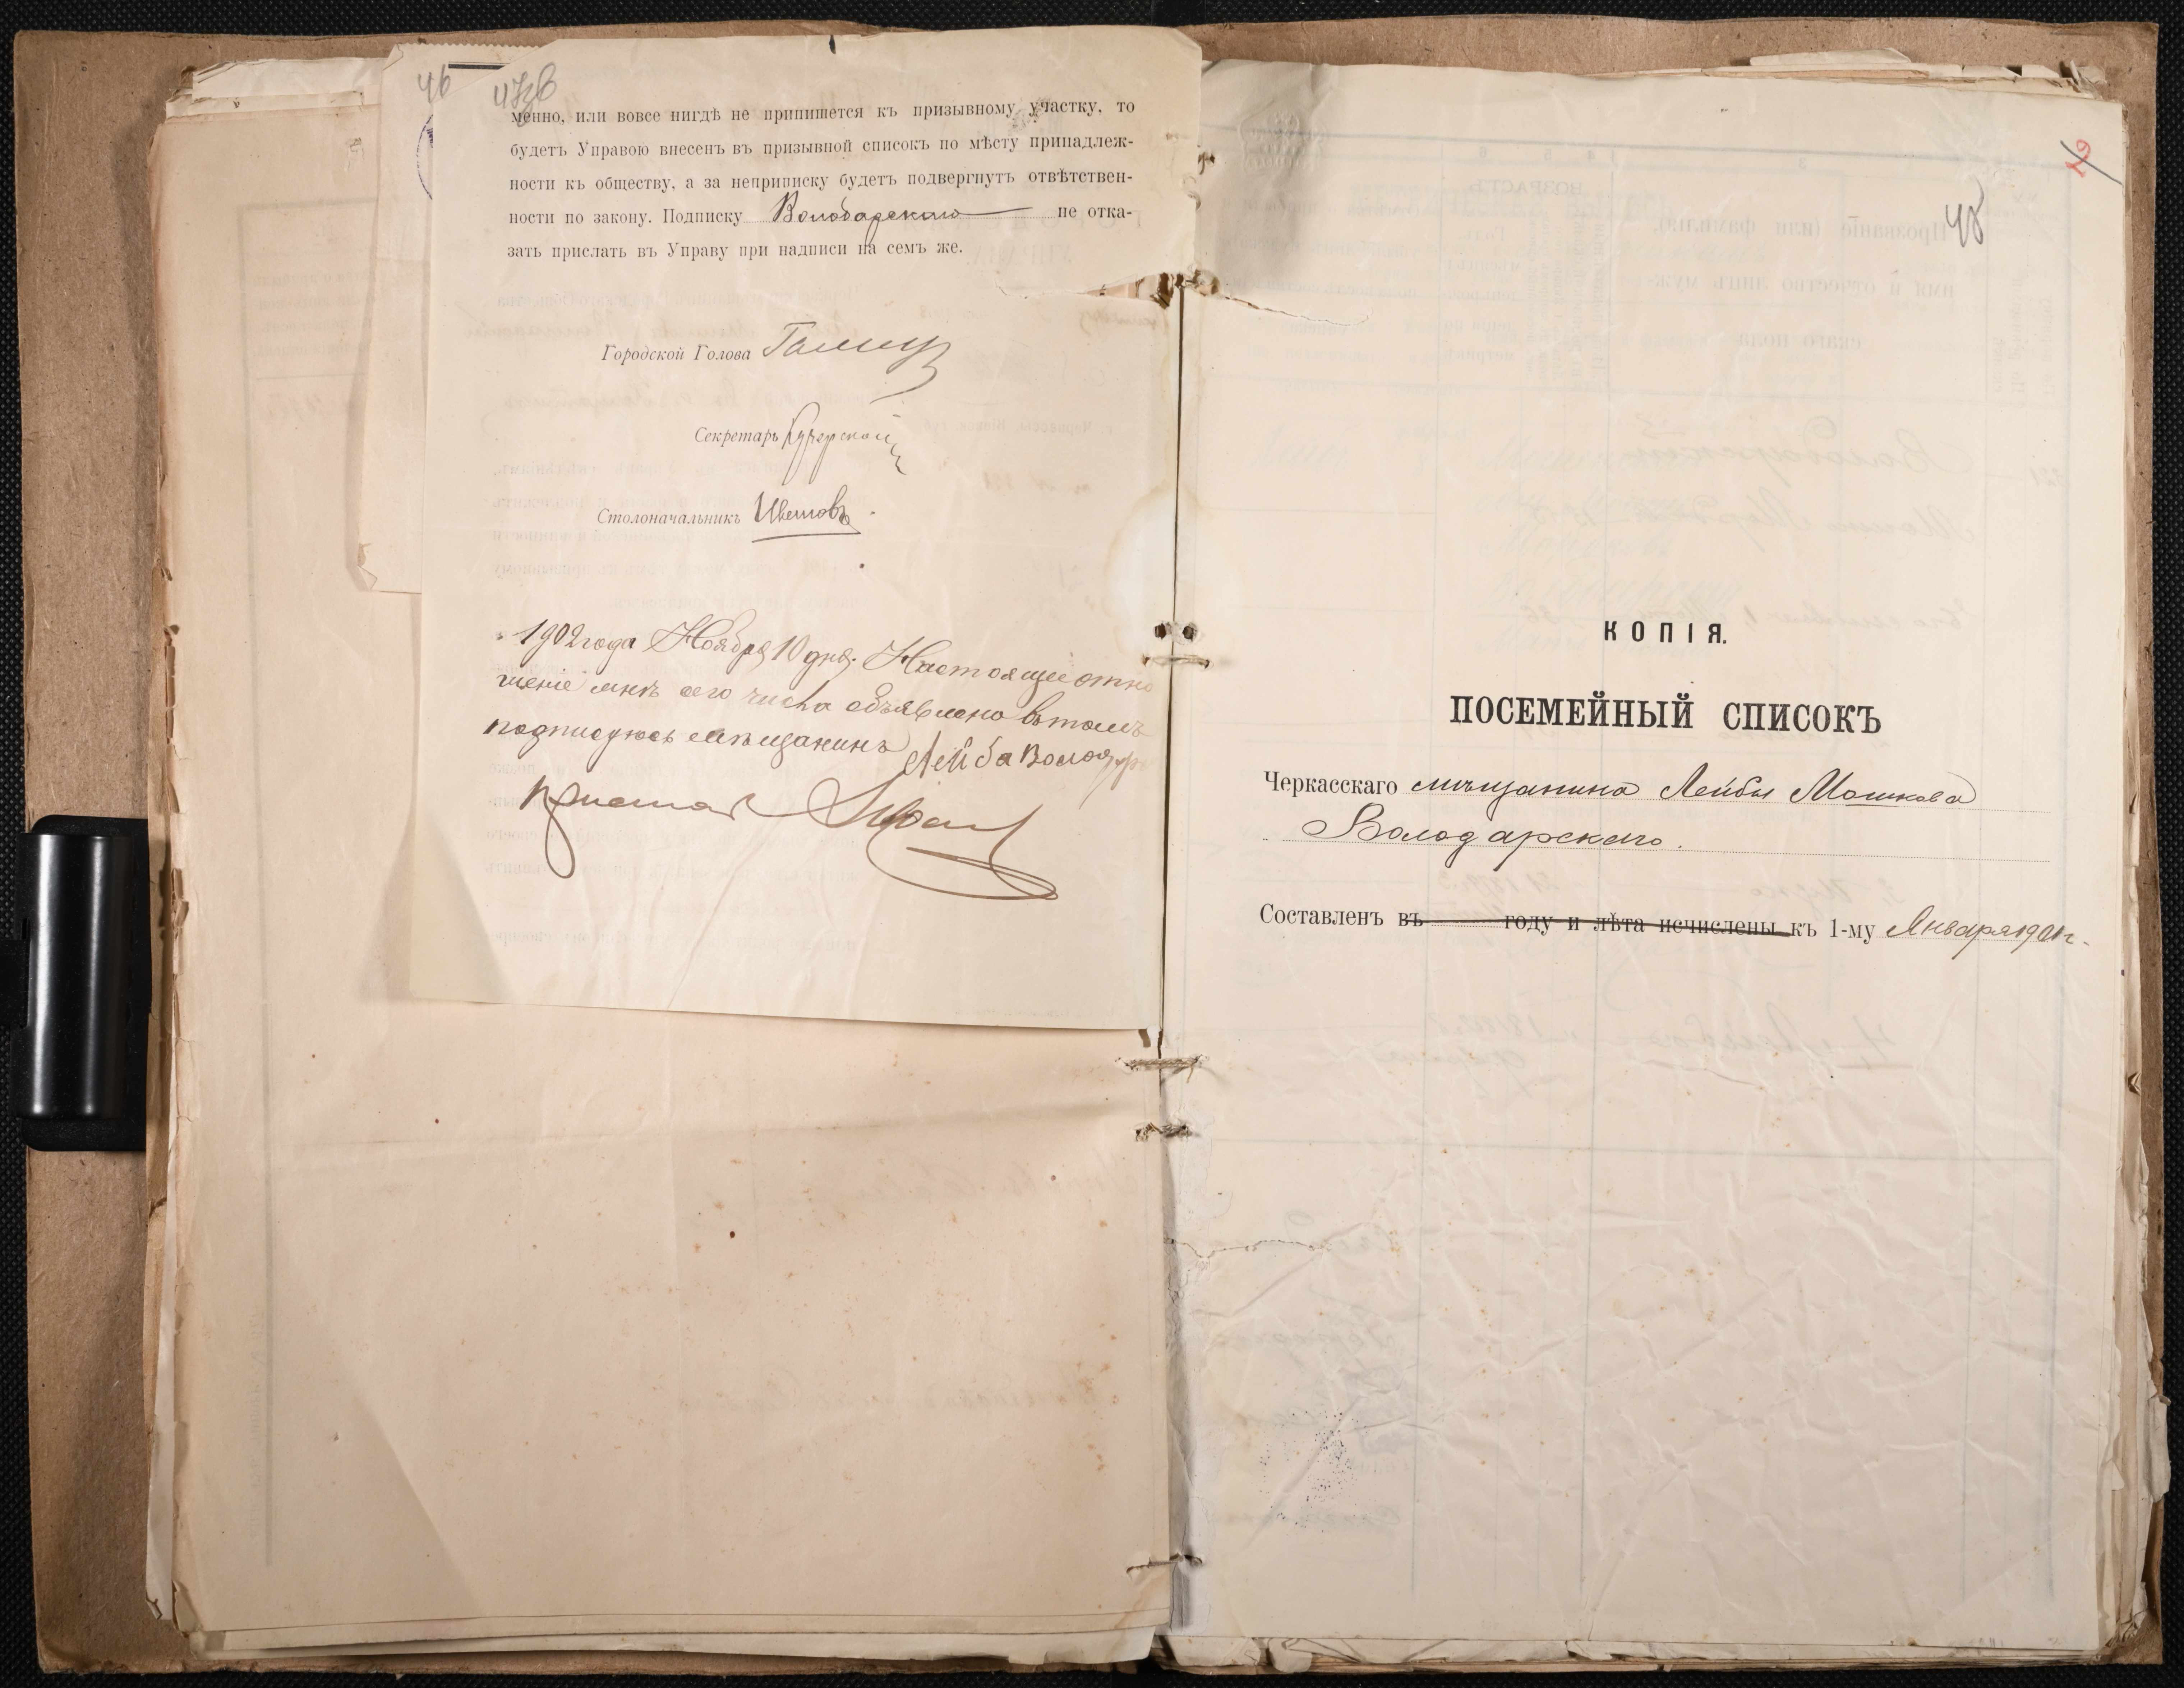 46
47об
менно, или вовсе нигдѣ не припишется къ призывному участку, то
будетъ Управою внесенъ въ призывной списокъ по мѣсту принадлеж-
ности къ обществу, а за неприписку будетъ подвергнутъ отвѣтствен-
ности по закону. Подписку Володарскаго не отка-
зать прислать въ Управу при надписи на семъ же.
Городской Голова
Секретарь
Столоначальникъ
1902 года Ноября 10 дня. Настоящее отно
шеніе мнѣ сего числа объявлено въ томъ
подписуюсь мѣщанинъ Лейба Володар
Приставъ
48
КОПІЯ.
ПОСЕМЕЙНЫЙ СПИСОКЪ
Черкасскаго мѣщанина Лейбы Мошкова
Володарскаго.
Составленъ въ году и лѣта исчислены къ 1-му Января 1901 г.